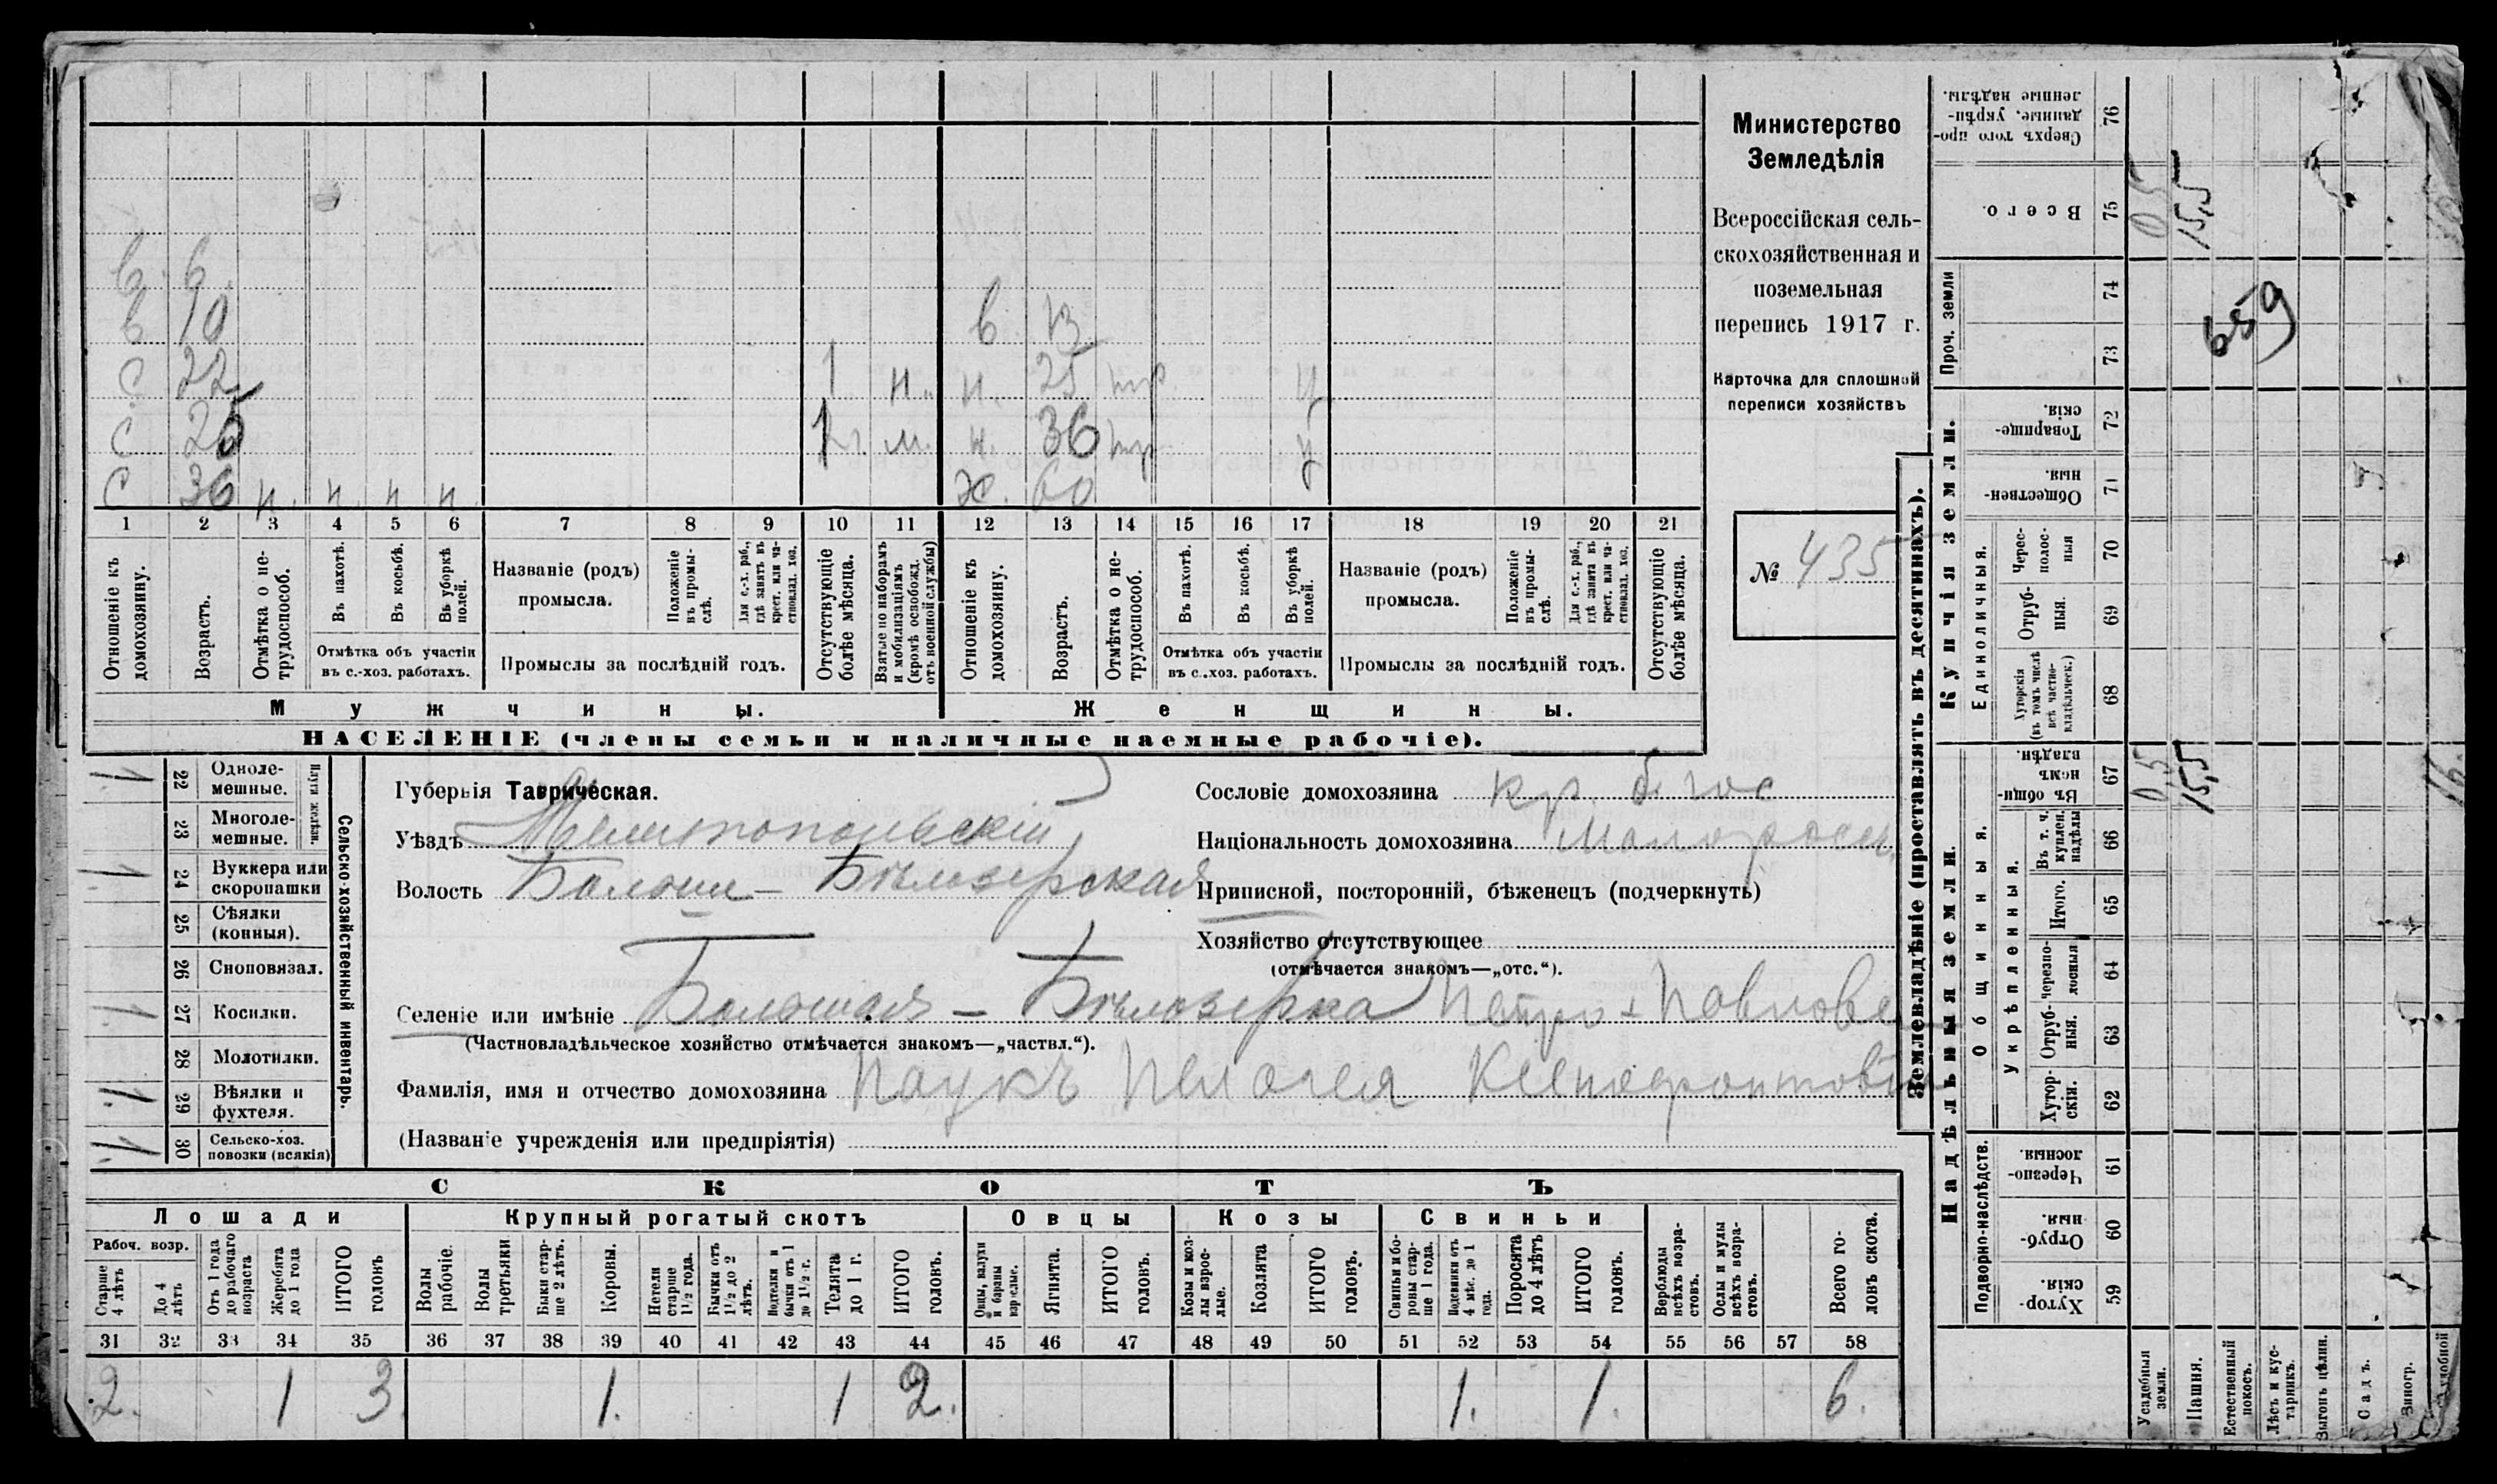 Министерство
Земледѣлія
Всероссійская сель-
скохозяйственная и
поземельная
перепись 1917 г.
Карточка для сплошной
переписи хозяйствъ
№ 435
в 6
в 10 в 13
с 22 1 н. н. 25 нр
с 26 1 г. м. н. 36 нр
с 36 н. н н н ж. 60
1 2 3 4 5 6 7 8 9 10 11 12 13 14 15 16 17 18 19 20 21
Отношеніе къ домохозяину.
Возрастъ.
Отмѣтка о не-трудоспособ.
Въ пахотѣ.
Въ косьбѣ.
Въ уборкѣ полей.
Отмѣтка объ участіи
въ с.-хоз. работахъ.
Названіе (родъ)
промысла.
Положеніе въ промы-слѣ.
Для с.-х. раб., гдѣ занятъ въ крест. или ча-стновлад. хоз.
Промыслы за послѣдній годъ.
Отсутствующіе болѣе мѣсяца.
Взятые по наборамъ и мобилизаціямъ (кромѣ освобожд. отъ военной службы)
Отношеніе къ домохозяину.
Возрастъ.
Отмѣтка о не-трудоспособ.
Въ пахотѣ.
Въ косьбѣ.
Въ уборкѣ полей.
Отмѣтка объ участіи
въ с.-хоз. работахъ.
Названіе (родъ)
промысла.
Положеніе въ промы-слѣ.
Для с.-х. раб., гдѣ занята въ крест. или ча-стновлад. хоз.
Промыслы за послѣдній годъ.
Отсутствующіе болѣе мѣсяца.
Мужчины. Женщины.
НАСЕЛЕНІЕ (члены семьи и наличные наемные рабочіе).
1 22 Одноле-мешные.
23 Многоле-мешные.
Плуги желѣзн.
1 24 Буккера или скоропашки
25 Сѣялки (конныя).
26 Сноповязал.
1 27 Косилки.
28 Молотилки.
1 29 Вѣялки и фухтеля.
1 30 Сельско-хоз. повозки (всякія)
Сельско-хозяйственный инвентарь.
Губернія Таврическая.
Уѣздъ Мелитопольскій
Волость Больше-Бѣлозерская
Сословіе домохозяина кр. б. гос
Національность домохозяина малоросс.
Приписной, посторонній, бѣженецъ (подчеркнуть)
Хозяйство отсутствующее
(отмѣчается знакомъ—„отс.“).
Селеніе или имѣніе Большая - Бѣлозерка Петро-Павловс
(Частновладѣльческое хозяйство отмѣчается знакомъ—„частвл.“).
Фамилія, имя и отчество домохозяина Паукъ Пелагея Ксенофонтов
(Названіе учрежденія или предпріятія)
СКОТЪ
Лошади Крупный рогатый скотъ Овцы Козы Свиньи
Рабоч. возр.
Старше 4 лѣтъ
До 4 лѣтъ
Отъ 1 года до рабочаго возраста
Жеребята до 1 года
ИТОГО головъ
Волы рабочіе.
Волы третьяки
Быки стар-ше 2 лѣтъ.
Коровы.
Нетели старше 1½ года.
Бычки отъ 1½ до 2 лѣтъ.
Подтелки и бычки отъ 1 до 1½ г.
Телята до 1 г.
ИТОГО головъ.
Овцы, валухи и бараны взрослые.
Ягнята.
ИТОГО головъ.
Козы и коз-лы взрос-лые.
Козлята
ИТОГО головъ.
Свиньи и бо-ровы стар-ше 1 года.
Подсвинки отъ 4 мѣс. до 1 года.
Поросята до 4 лѣтъ
ИТОГО головъ.
Верблюды всѣхъ возра-стовъ.
Ослы и мулы всѣхъ возра-стовъ.
Всего го-ловъ скота.
31 32 33 34 35 36 37 38 39 40 41 42 43 44 45 46 47 48 49 50 51 52 53 54 55 56 57 58
2. 1 3 1. 1 2. 1. 1. 6.
Землевладѣніе (проставлять въ десятинахъ).
Надѣльныя земли.
Купчія земли.
Проч. земли
Подворно-наслѣдств.
Общинныя.
Укрѣпленныя.
Единоличныя.
Сверхъ того про-данные, укрѣп-ленные надѣлы. 76
Всего. 75 0,5 15,5
74
73
659
Товарище-скія. 72
Обществен-ныя. 71
Черес-полос-ныя 70
Отруб-ныя. 69
Хуторскія (въ томъ числѣ всѣ частно-владѣльческ.) 68
Въ общи-номъ владѣн. 67 0,5 15,5 16.
Въ т. ч. куплен. надѣлы 66
Итого. 65
черезпо-лосныя 64
Отруб-ныя. 63
Хутор-скія. 62
Черезпо-лосныя. 61
Отруб-ныя. 60
Хутор-скія. 59
Усадебныя земли.
Пашня.
Естественный покосъ.
Лѣсъ и кус-тарникъ.
Выгонъ цѣлин.
Садъ.
Виногр.
удобной